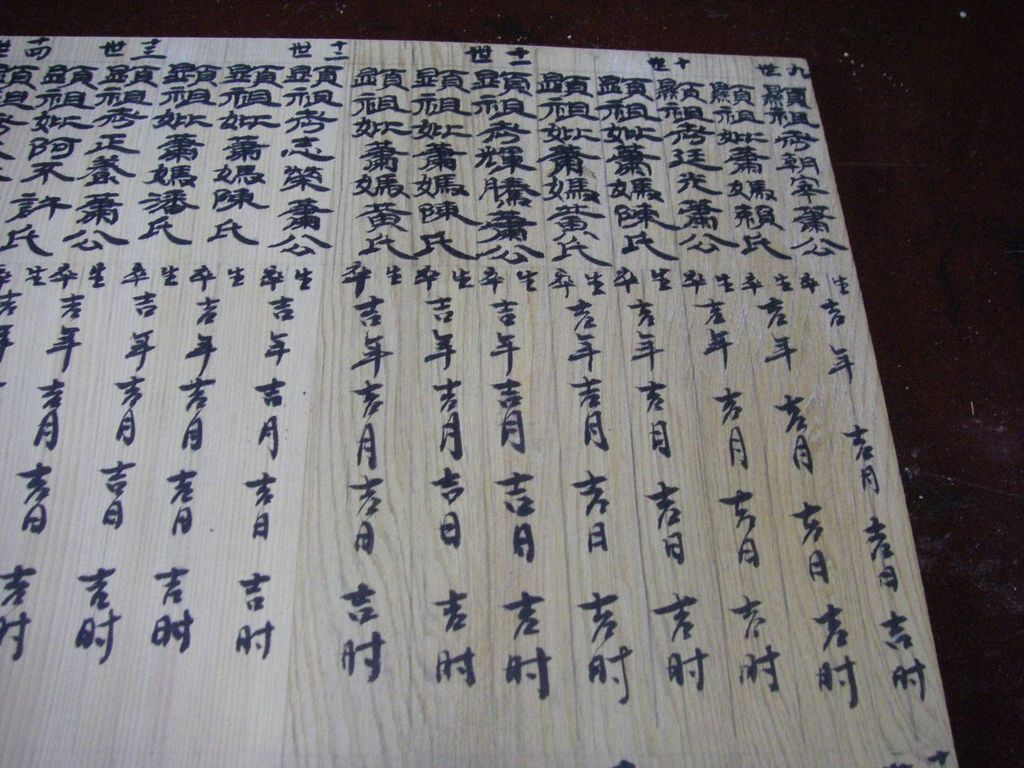 九世顯祖考朝宰蕭公生卒吉年吉月吉日吉时
顯祖妣蕭媽賴氏生卒吉年吉月吉日吉时
十世顯祖考廷光蕭公生卒吉年吉月吉日吉时
顯祖妣蕭媽陳氏生卒吉年吉月吉日吉时
顯祖妣蕭媽黃氏生卒吉年吉月吉日吉时
十一世顯祖考輝騰蕭公生卒吉年吉月吉日吉时
顯祖妣蕭媽陳氏生卒吉年吉月吉日吉时
顯祖妣蕭媽黃氏生卒吉年吉月吉日吉时
十二世顯祖考志榮蕭公生卒吉年吉月吉日吉时
顯祖妣蕭媽陳氏生卒吉年吉月吉日吉时
顯祖妣蕭媽潘氏生卒吉年吉月吉日吉时
十三世顯祖考正養蕭公生卒吉年吉月吉日吉时
顯祖妣阿不許氏生卒吉年
十四世顯祖考